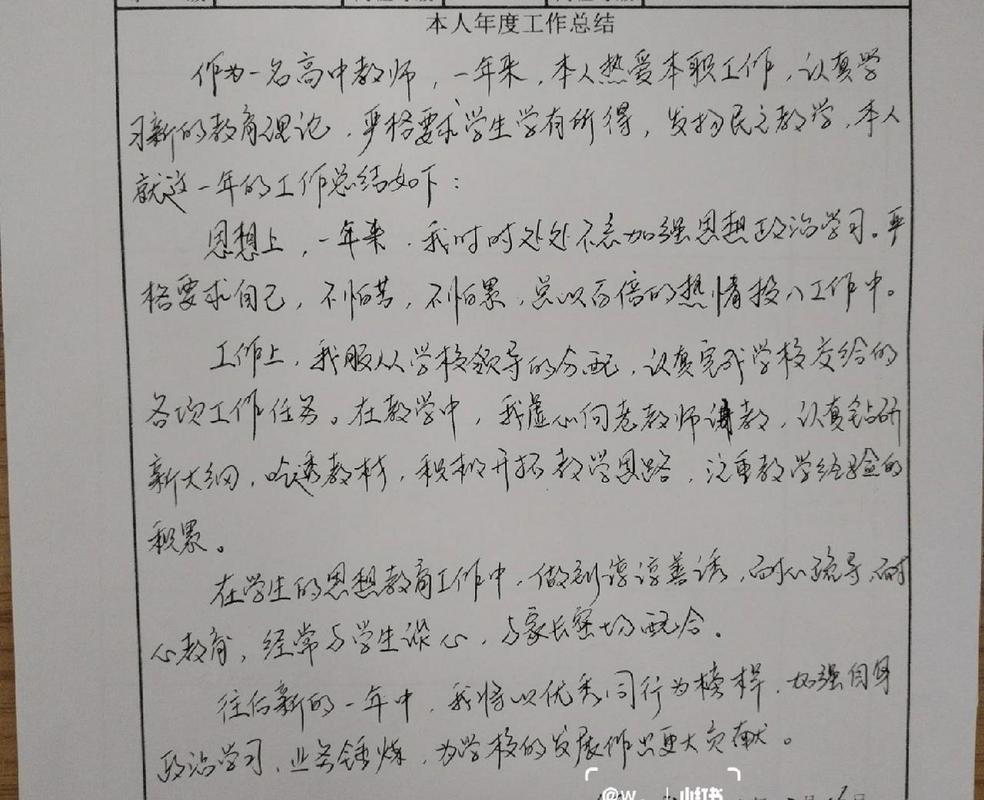 本人年度工作总结
作为一名高中教师，一年来，本人热爱本职工作，认真学
习新的教育理论，严格要求学生学有所得，发扬民主教学，本人
就这一年的工作总结如下：
思想上，一年来，我时时处处不忘加强思想政治学习。严
格要求自己，不怕苦，不怕累，总以百倍的热情投入工作中。
工作上，我服从学校领导的分配，认真完成学校交给的
各项工作任务。在教学中，我虚心向老教师请教，认真钻研
新大纲，吃透教材，积极开拓教学思路，注重教学经验的
积累。
在学生的思想教育工作中，做到谆谆善诱，耐心疏导，耐
心教育，经常与学生谈心，与家长密切配合。
往后新的一年中，我将以优秀同行为榜样，加强自身
政治学习，业务锤炼，为学校的发展作出更大贡献。
小红书